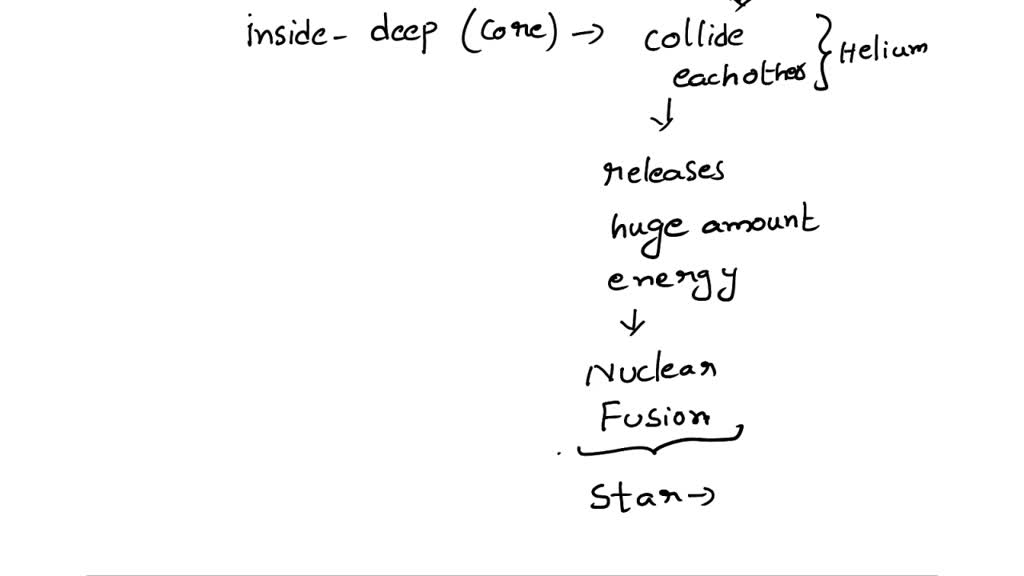 inside - deep (core) → collide
eachother } Helium
↓
releases
huge amount
energy
↓
Nuclear
Fusion
Star →